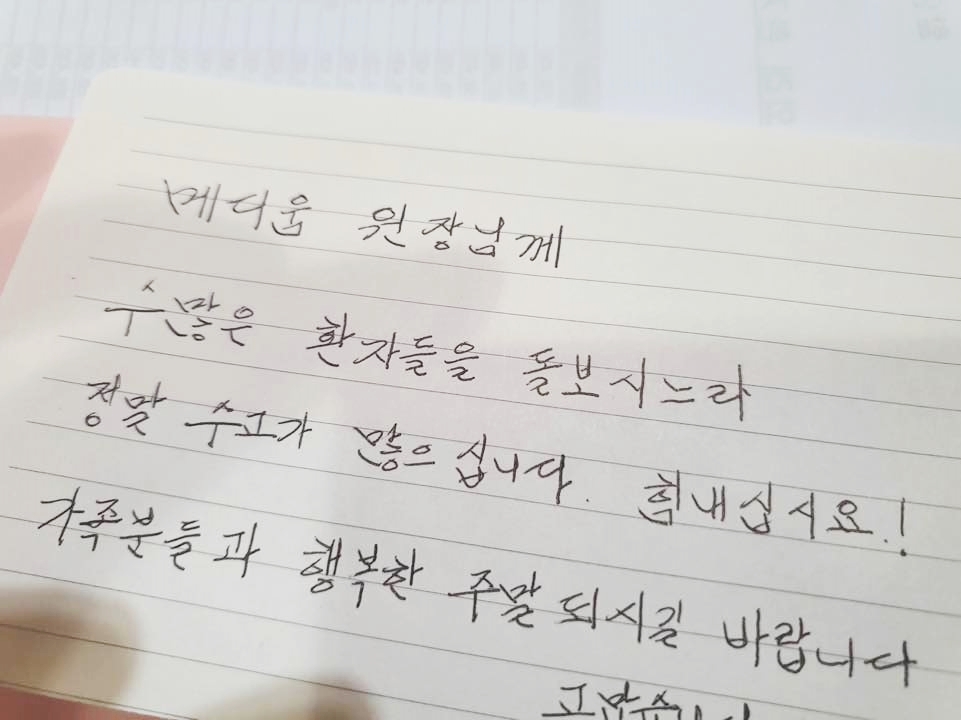 메디움 원장님께
수많은 환자들을 돌보시느라
정말 수고가 많으십니다. 힘내십시요.!
가족분들과 행복한 주말 되시길 바랍니다